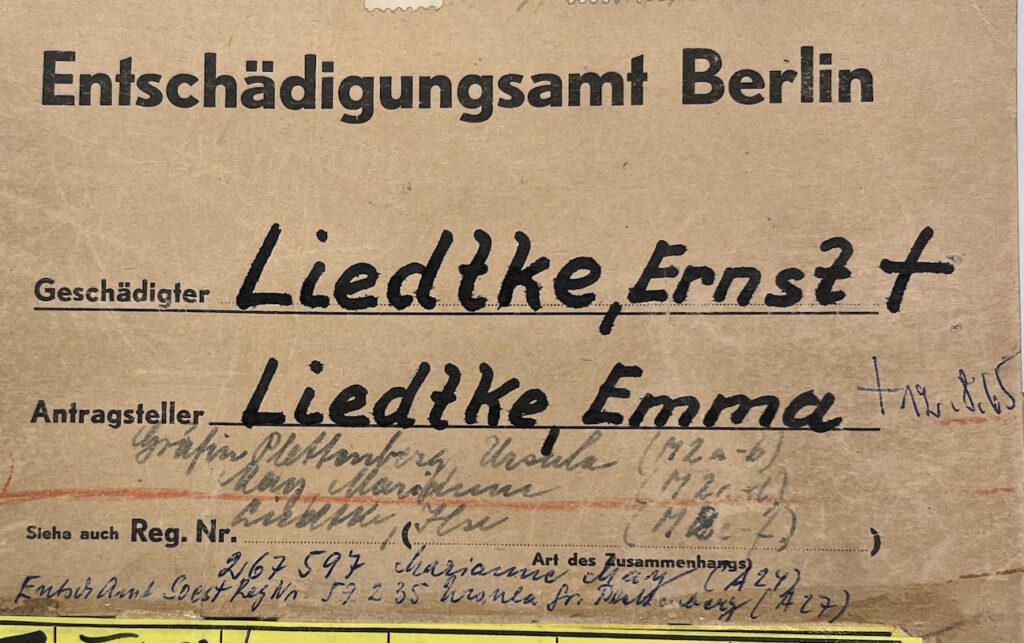 Entschädigungsamt Berlin
Geschädigter Liedtke, Ernst +
Antragsteller Liedtke, Emma + 12.8.65
Gräfin Plettenberg, Ursula (M2a-b)
May, Marianne (M2c-d)
Liedtke, Ilse
Siehe auch Reg. Nr. ( )
Art des Zusammenhangs
267 597 Marianne May (A24)
Entsch Amt Soest Reg Nr. 59 235 Ursula Gr. Plettenberg (A27)